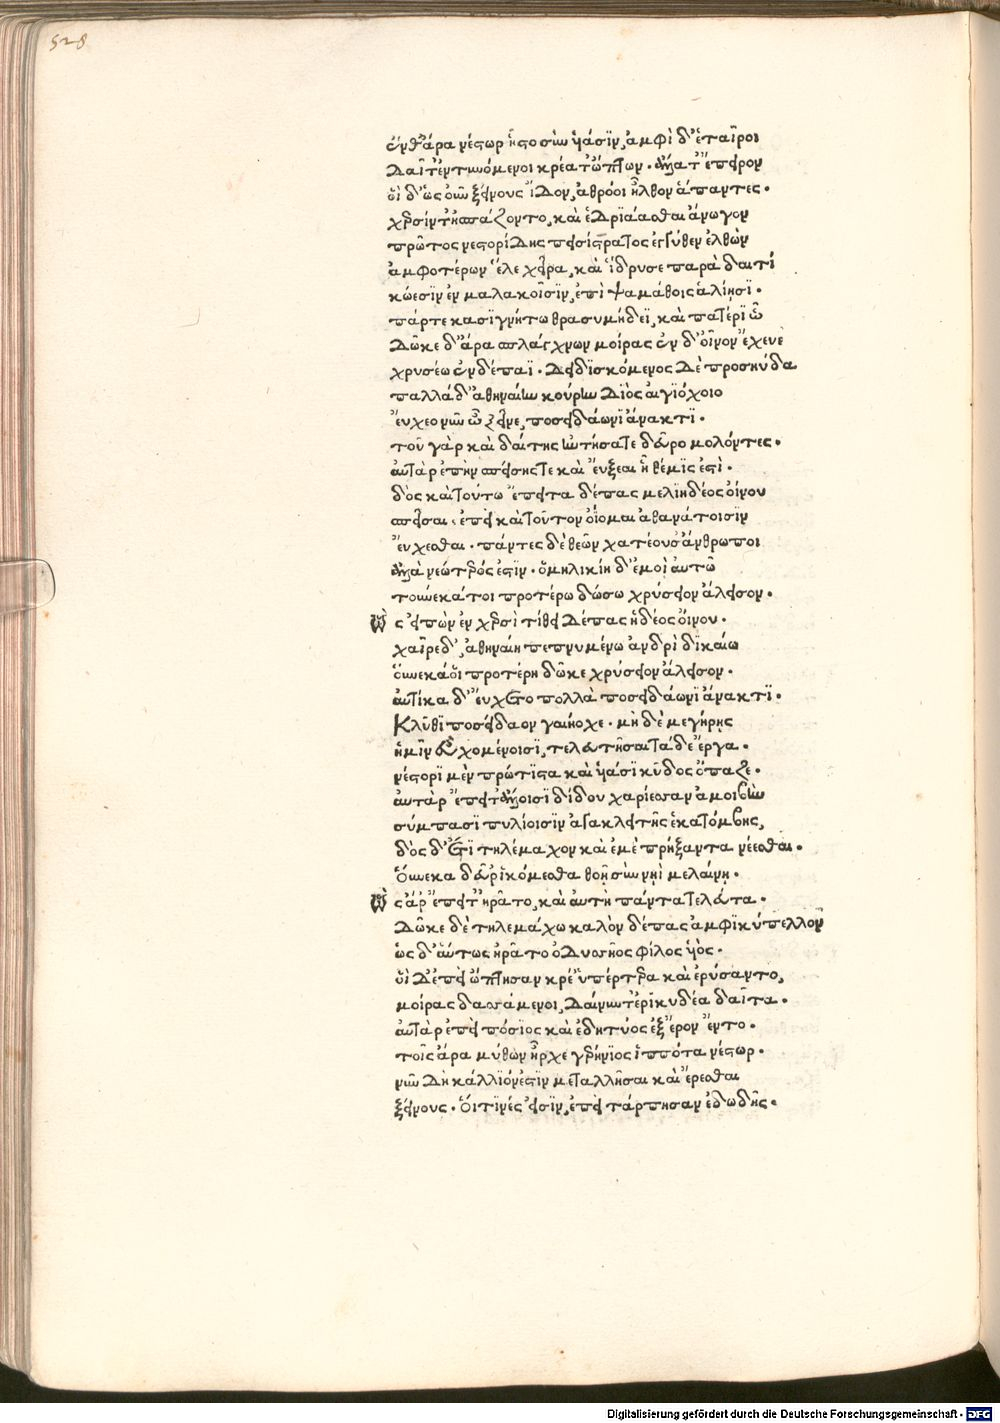 528
ἔνθ' ἄρα νέστωρ ἧστο σὺν υἱάσιν, ἀμφὶ δ' ἑταῖροι
Δαῖτ' ἐντυνόμενοι κρέα τ' ὤπτων. ἄλλα τ' ἔπειρον
οἱ δ' ὡς οὖν ξείνους ἴδον, ἀθρόοι ἦλθον ἅπαντες.
χερσίν τ' ἠσπάζοντο, καὶ ἑδριάασθαι ἄνωγον
πρῶτος νεστορίδης πεισίστρατος ἐγγύθεν ἐλθὼν
ἀμφοτέρων ἕλε χεῖρα, καὶ ἵδρυσε παρὰ δαιτί
κώεσιν ἐν μαλακοῖσιν, ἐπὶ ψαμάθοις ἁλίῃσι.
πάρτε κασιγνήτω θρασυμήδεϊ, καὶ πατέρι ὧ
Δῶκε δ' ἄρα σπλάγχνων μοίρας ἐν δ' οἶνον ἔχευε
χρυσέω ἐν δέπαϊ. Δειδισκόμενος Δὲ προσηύδα
παλλάδ' ἀθηναίην κούρην Διὸς αἰγιόχοιο
εὔχεο νῦν ὦ ξεῖνε, ποσειδάωνι ἄνακτι.
τοῦ γὰρ καὶ δαίτης ἠντήσατε δεῦρο μολόντες.
αὐτὰρ ἐπὴν σπείσῃς τε καὶ εὔξεαι ἣ θέμις ἐστὶ.
δὸς καὶ τούτω ἔπειτα δέπας μελιηδέος οἴνου
σπεῖσαι. ἐπεὶ καὶ τοῦτον ὀΐομαι ἀθανάτοισιν
εὔχεσθαι. πάντες δὲ θεῶν χατέουσ' ἄνθρωποι
ἀλλὰ νεώτερός ἐστιν. ὁμηλικίη δ' ἐμοὶ αὐτῶ
τοὔνεκά τοι προτέρω δώσω χρύσειον ἄλεισον.
ὣς εἰπὼν ἐν χερσὶ τίθει Δέπας ἡδέος οἴνου.
χαῖρε δ', ἀθηναίη πεπνυμένω ἀνδρὶ δικαίω
οὕνεκά οἱ προτέρη δῶκε χρύσειον ἄλεισον.
αὐτίκα δ' εὔχετο πολλὰ ποσειδάωνι ἄνακτι.
Κλῦθι ποσείδαον γαιήοχε. μὴ δὲ μεγήρῃς
ἡμῖν εὐχομένοισι, τελευτῆσαι τάδε ἔργα.
νέστορι μὲν πρώτιστα καὶ υἱάσι κῦδος ὄπαζε.
αὐτὰρ ἔπειτ' ἄλλοισι δίδου χαρίεσσαν ἀμοιβὴν
σύμπασι πυλίοισιν ἀγακλειτῆς ἑκατόμβης,
δὸς δ' ἔτι τηλέμαχον καὶ ἐμὲ πρήξαντα νέεσθαι.
Οὕνεκα δεῦρ' ἱκόμεσθα θοῇ σὺν νηὶ μελαίνῃ.
ὣς ἄρ' ἔπειτ' ἠρᾶτο, καὶ αὐτὴ πάντα τελεύτα.
Δῶκε δὲ τηλεμάχω καλὸν δέπας ἀμφικύπελλον
ὣς δ' αὔτως ἠρᾶτο ὀδυσσῆος φίλος υἱὸς.
οἱ Δ' ἐπεὶ ὤπτησαν κρέ' ὑπέρτερα καὶ ἐρύσαντο,
μοίρας δασσάμενοι, Δαίνυντ' ἐρικυδέα δαῖτα.
αὐτὰρ ἐπεὶ πόσιος καὶ ἐδητύος ἐξ ἔρον ἕντο.
τοῖς ἄρα μύθων ἦρχε γερήνιος ἱππότα νέστωρ.
νῦν Δὴ κάλλιόν ἐστιν μεταλλῆσαι καὶ ἔρεσθαι
ξείνους. Οἵ τινές εἰσιν, ἐπεὶ τάρπησαν ἐδωδῆς.
Digitalisierung gefördert durch die Deutsche Forschungsgemeinschaft - DFG